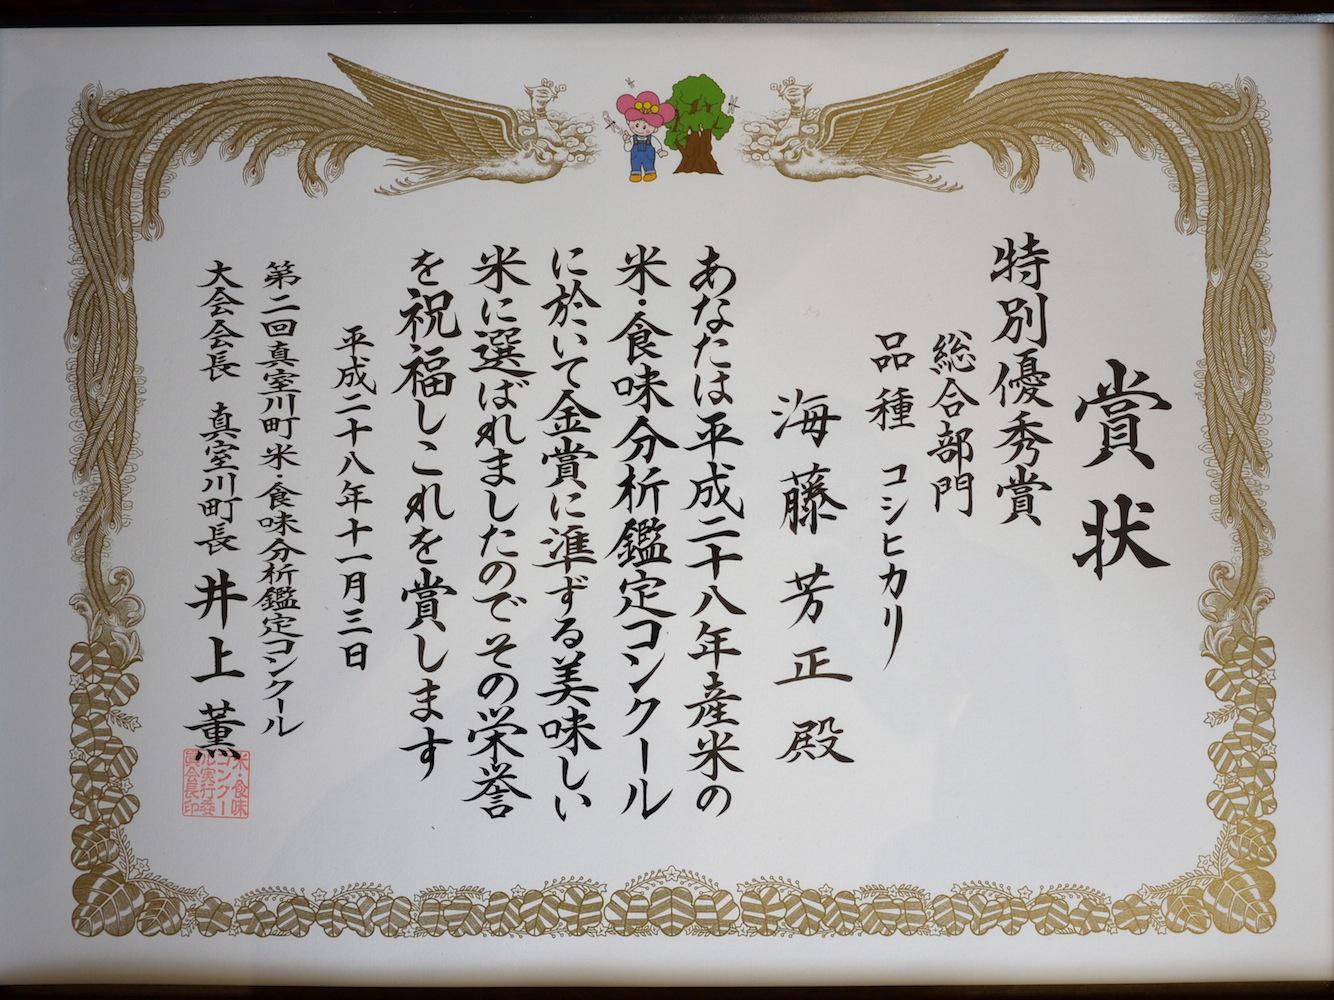 賞状
特別優秀賞
総合部門
品種 コシヒカリ
海藤芳正殿
あなたは平成二十八年産米の
米・食味分析鑑定コンクール
に於いて金賞に準ずる美味しい
米に選ばれましたのでその栄誉
を祝福しこれを賞します
平成二十八年十一月三日
第二回真室川町米・食味分析鑑定コンクール
大会会長 真室川町長 井上薫
米・食味
コンクー
ル実行委
員会長印